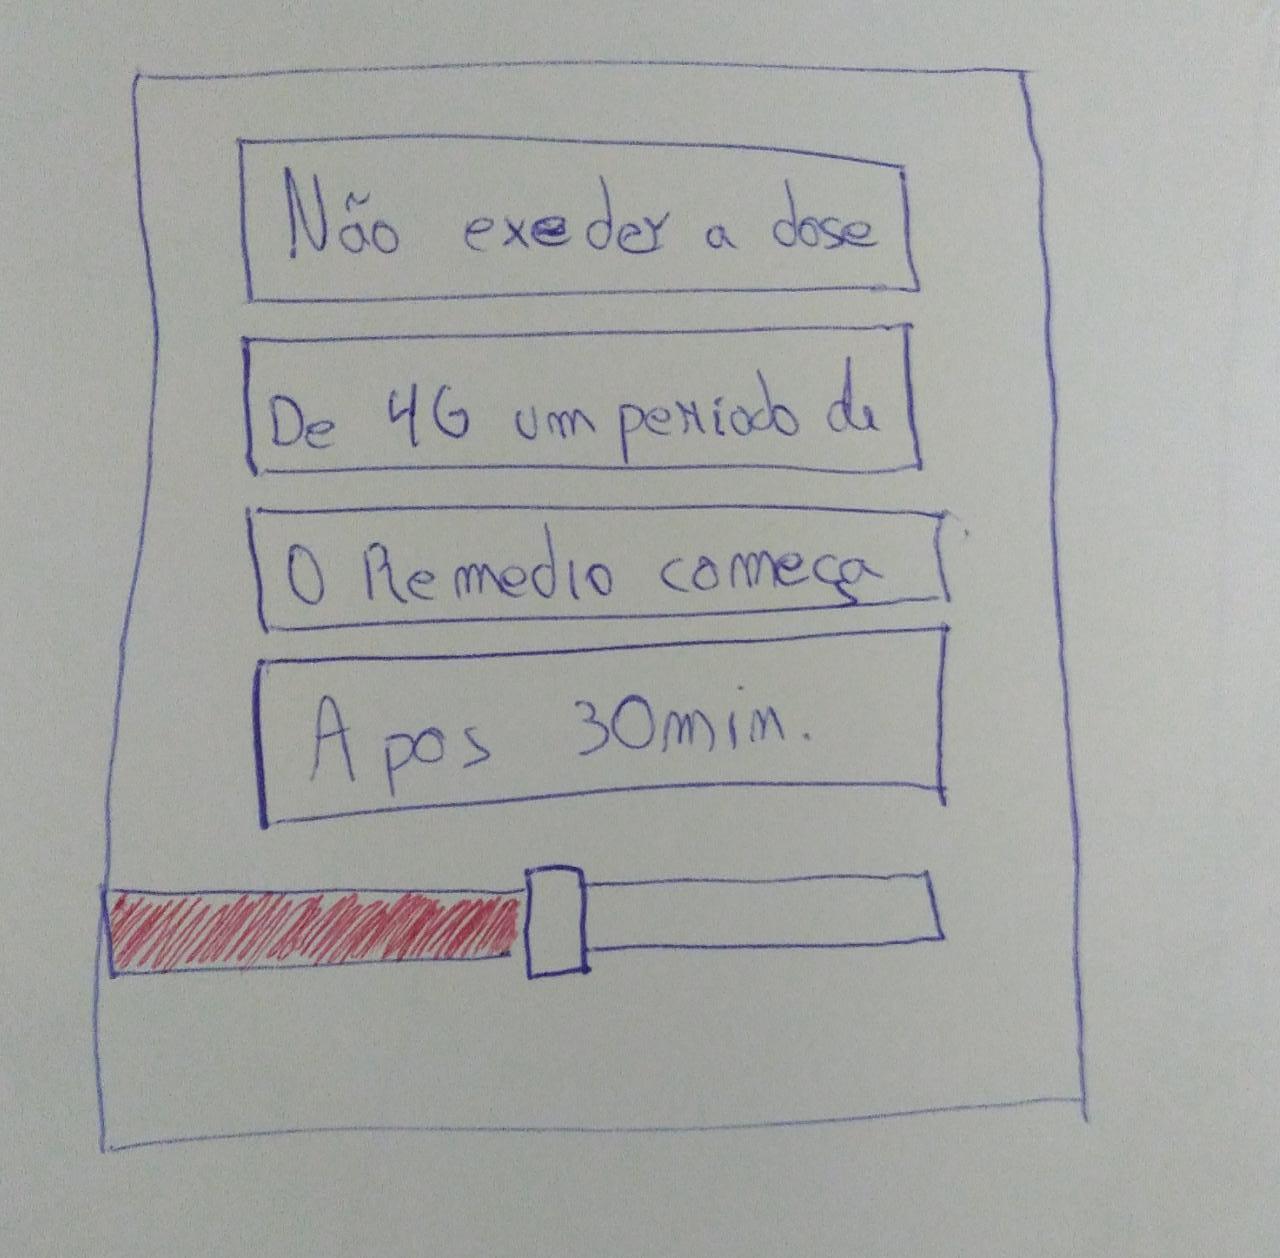 Não exeder a dose
De 4G um período de
O Remedio começa
Apos 30min.